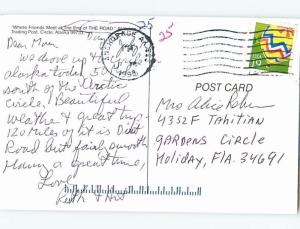 "Where Friends Meet at the End of THE ROAD"
Trading Post, Circle, Alaska 99733
25
25
Dear Mom,
We drove up to
Alaska today, 50
south of the Arctic
Circle. Beautiful
weather & great trip-
120 miles of it is Dirt
Road but fairly smooth
Having a great time,
Love
Ruth
ANCHORAGE AK
1993
19
POST CARD
Mrs Alice
4352F Tahitian
GARDENS Circle
Holiday, FLA. 34691